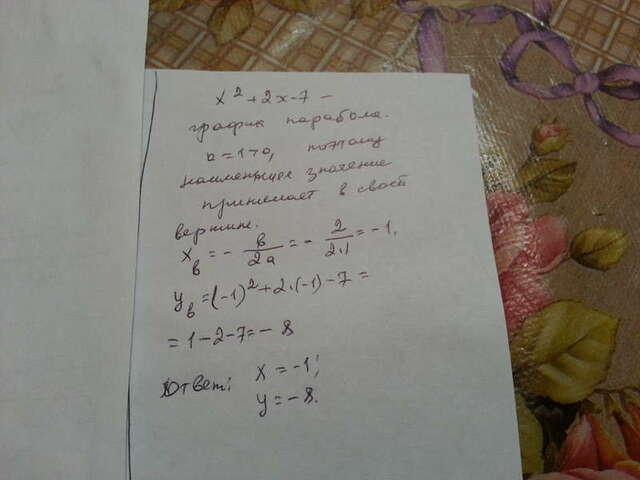 x² + 2x - 7 -
график парабола.
a = 1 > 0, поэтому
наименьшее значение
принимает в своей
вершине.
xв = - в/2a = - 2/2·1 = -1,
yв = (-1)² + 2·(-1) - 7 =
= 1 - 2 - 7 = - 8
Ответ: x = -1;
y = -8.